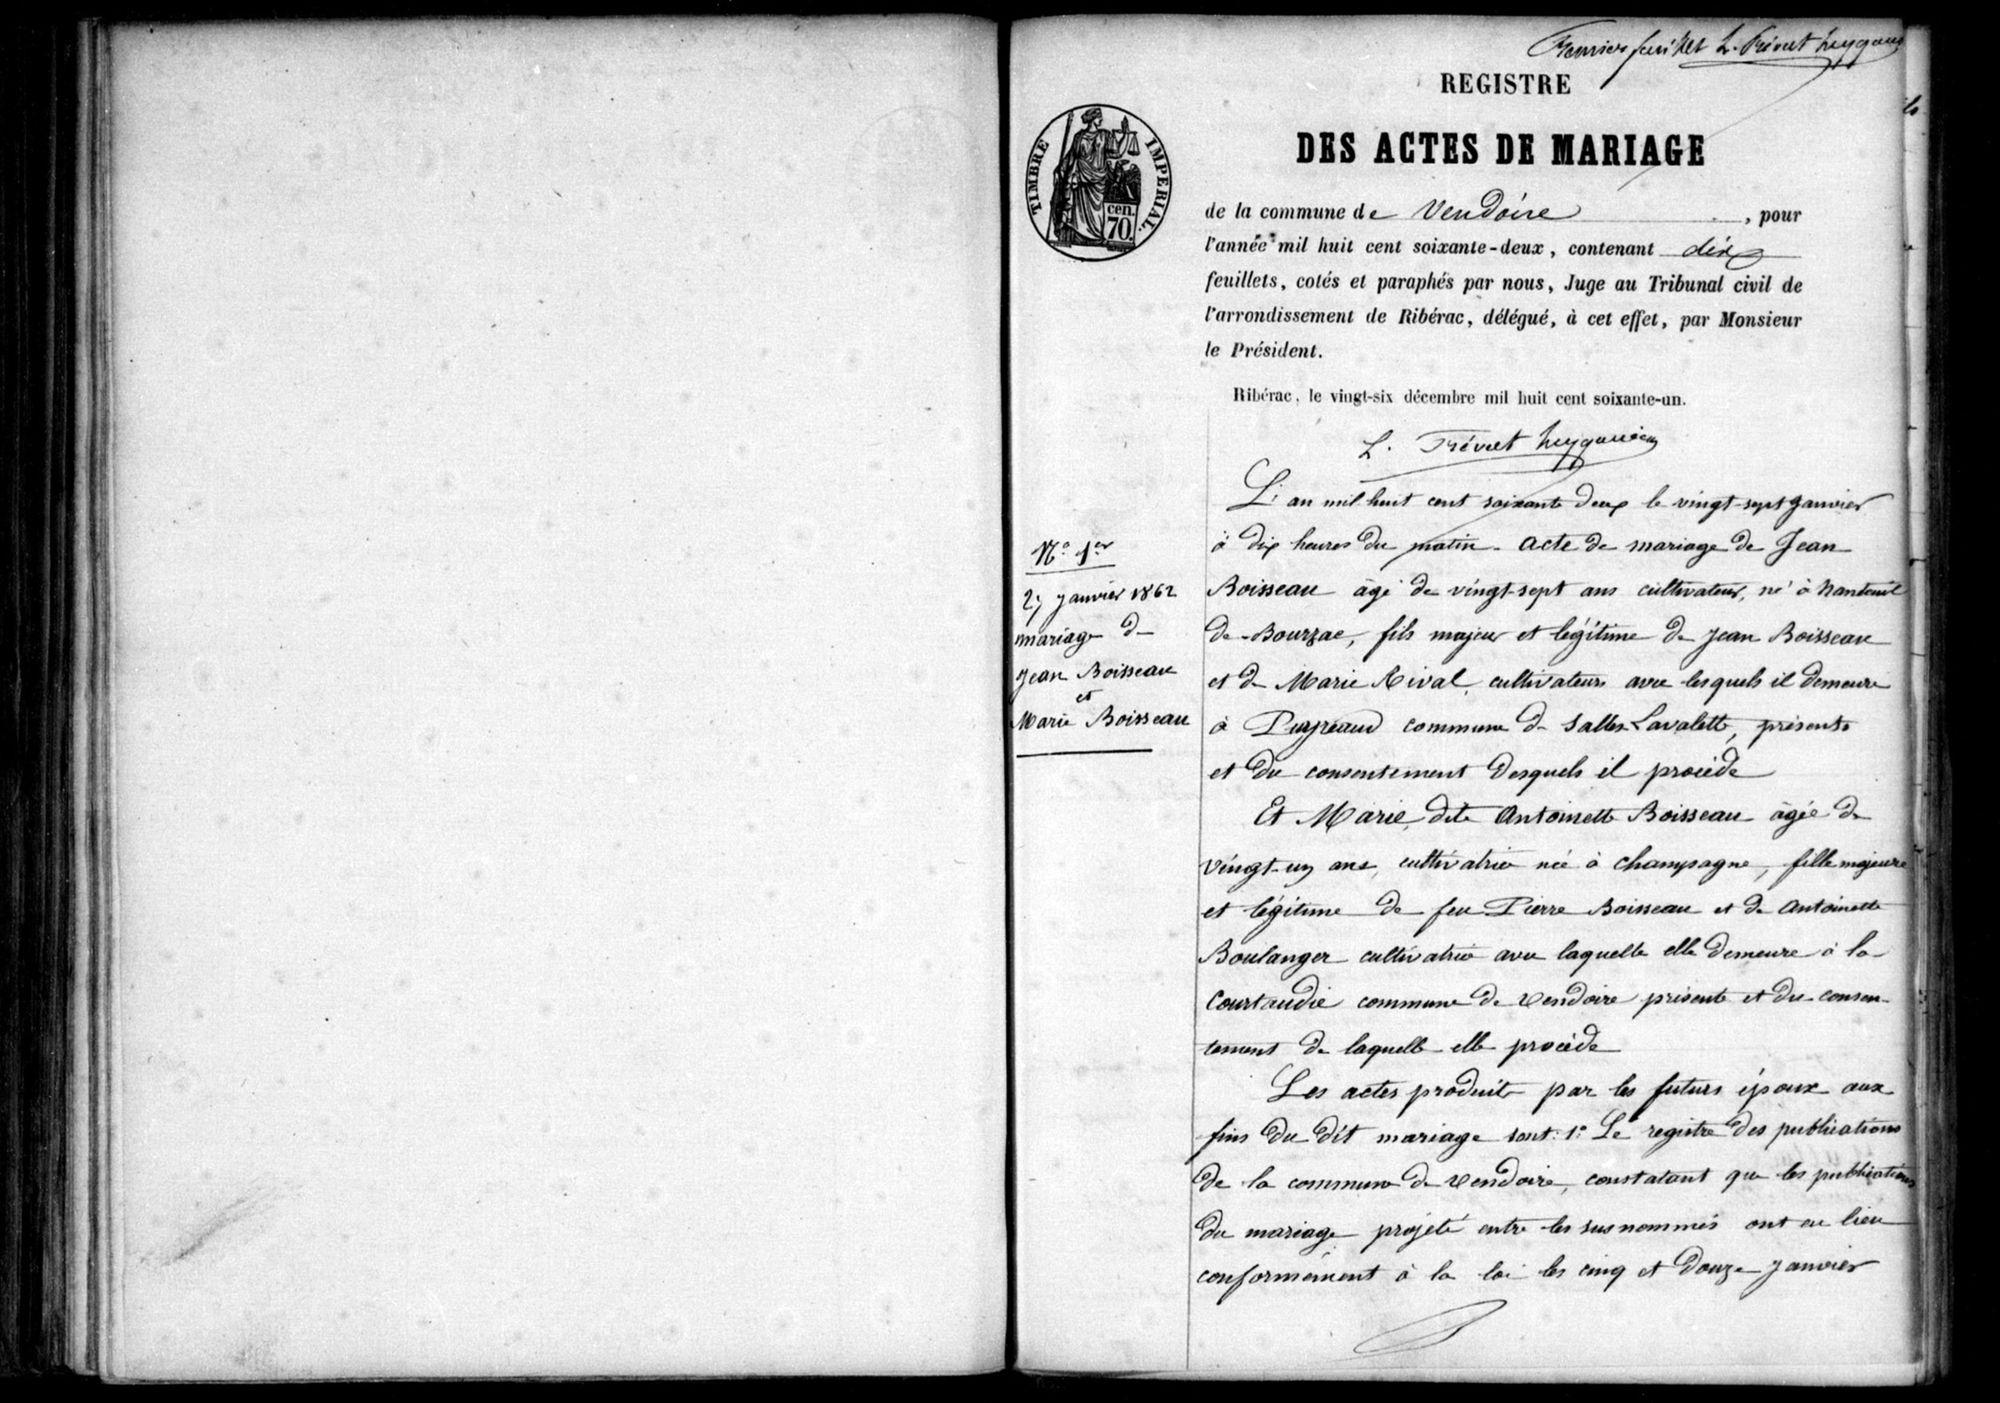 Premier feuillet L. Prévost
REGISTRE
DES ACTES DE MARIAGE
TIMBRE IMPERIAL.
cen.
70.
de la commune de Vendoire, pour
l'année mil huit cent soixante-deux, contenant dix
feuillets, cotés et paraphés par nous, Juge au Tribunal civil de
l'arrondissement de Ribérac, délégué, à cet effet, par Monsieur
le Président.
Ribérac, le vingt-six décembre mil huit cent soixante-un.
L. Prévost
N° 1er
27 Janvier 1862
mariage de
Jean Boisseau
et
Marie Boisseau
L'an mil huit cent soixante deux le vingt-sept Janvier
à dix heures du matin. acte de mariage de Jean
Boisseau âgé de vingt-sept ans cultivateur, né à Nanteuil
de-Bourzac, fils majeur et légitime de Jean Boisseau
et de Marie Rival, cultivateurs avec lesquels il demeure
à Puyreaud commune de Salles Lavalette, présents
et du consentement desquels il procède
Et Marie, dite Antoinette Boisseau âgée de
vingt-un ans, cultivatrice née à Champagne, fille majeure
et légitime de feu Pierre Boisseau et de Antoinette
Boulanger cultivatrice avec laquelle elle demeure à la
Courtaudie commune de Vendoire présente et du consen-
tement de laquelle elle procède
Les actes produits par les futurs époux aux
fins du dit mariage sont: 1° Le registre des publications
de la commune de Vendoire, constatant que les publications
du mariage projeté entre les susnommés ont eu lieu
conformément à la loi les cinq et douze Janvier